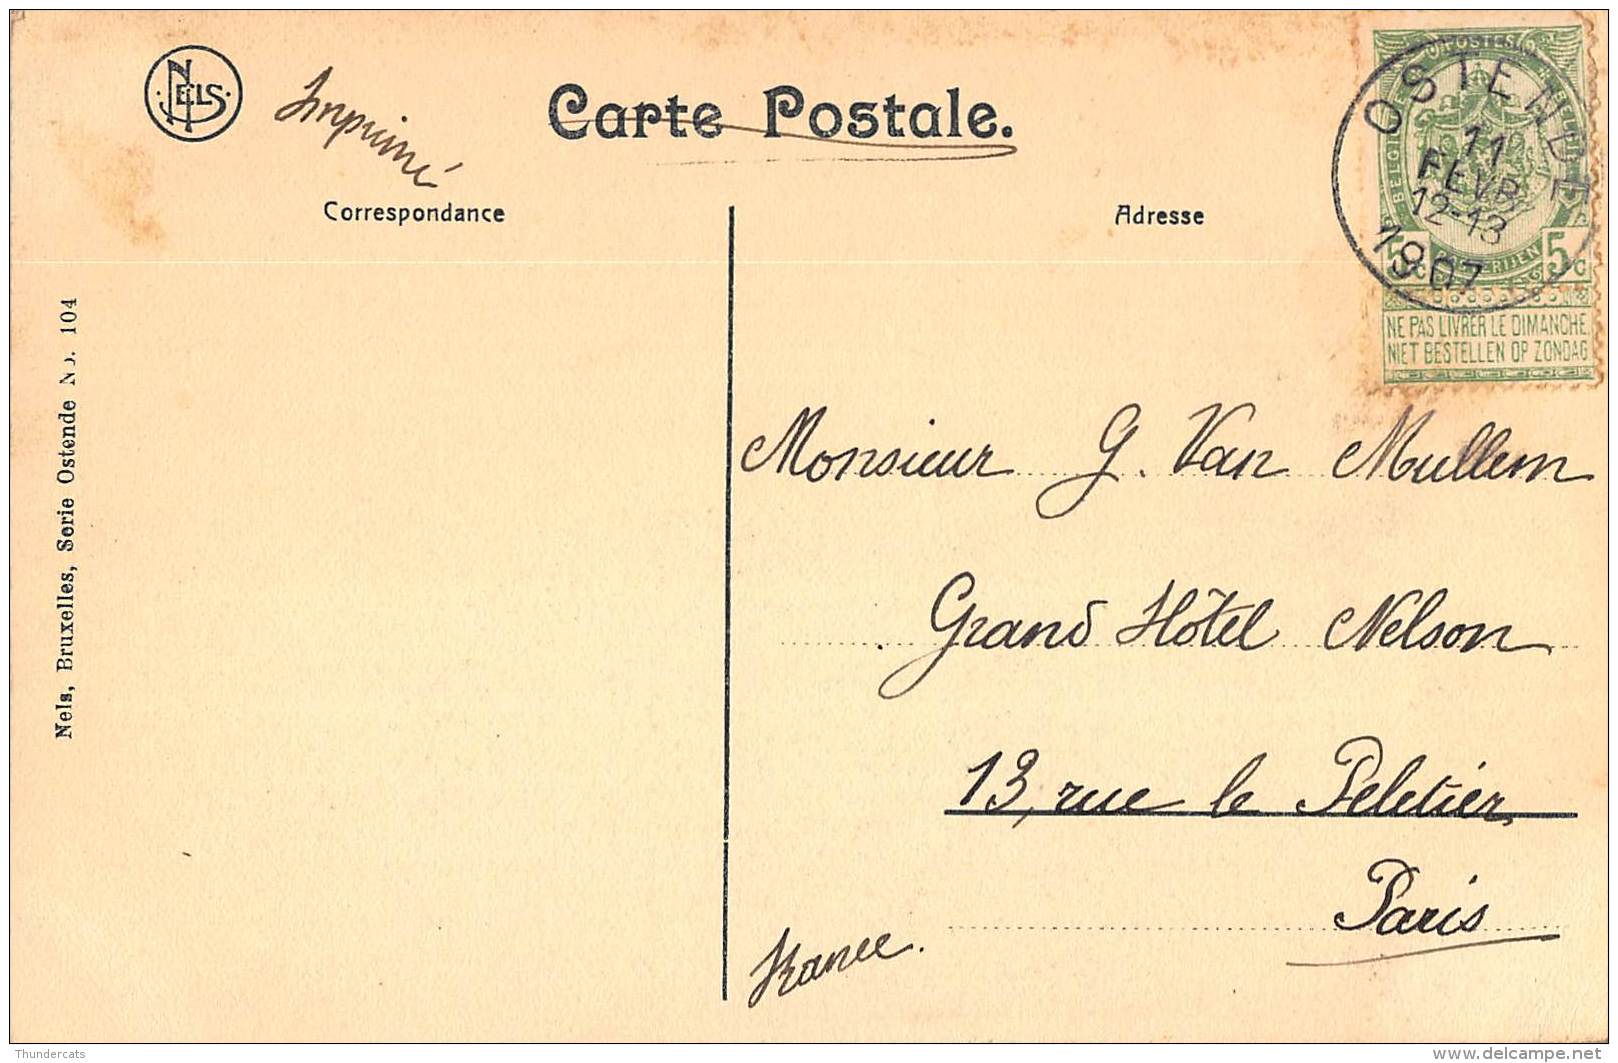 NELS
Imprimé
Carte Postale.
Correspondance
Adresse
POSTES
BELGIQUE
OSTENDE
11
FEVR
12-13
1907
5 C 5 C
NE PAS LIVRER LE DIMANCHE.
NIET BESTELLEN OP ZONDAG
Nels, Bruxelles, Serie Ostende No. 104
Monsieur G. Van Mullem
Grand Hôtel Nelson
13, rue le Peletier
Paris
France.
Thundercats
www.delcampe.net